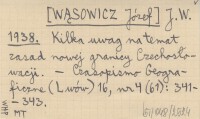 [WĄSOWICZ Józef] J.W.
1938. Kilka uwag na temat
zasad nowej granicy Czechosło-
wacji. — Czasopismo Geogra-
ficzne (Lwów) 16, nr 4 (61): 341-
-343.
MT